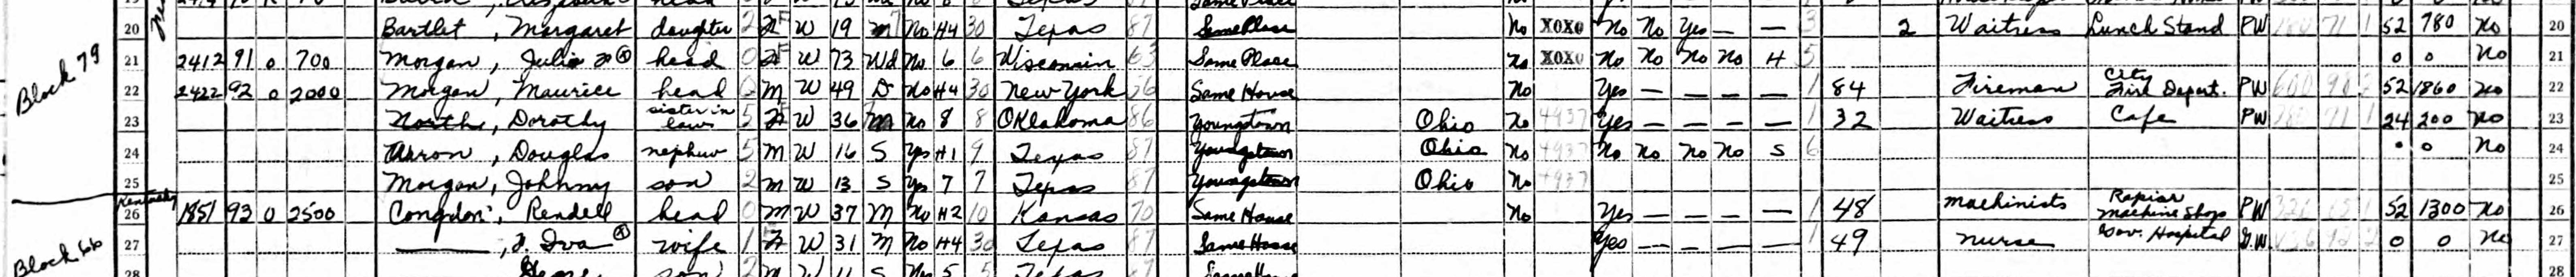 20 Bartlet, Margaret daughter 2 F W 19 M No H4 30 Texas 87 Same Place No X0X0 No No Yes — — 3 2 Waitress Lunch Stand PW 52 780 No 20
Block 79
21 2412 91 0 700 Morgan, Julia head 0 F W 73 Wd No 6 6 Wisconsin 63 Same Place No X0X0 No No No No H 5 0 0 No 21
22 2422 92 0 2000 Morgan, Maurice head 0 M W 49 D No H4 30 New York 56 Same House No Yes — — — — 1 84 Fireman City Fire Depart. PW 52 1860 No 22
23 North, Dorothy sister in law 5 F W 36 M No 8 8 Oklahoma 86 Youngstown Ohio No 4937 Yes — — — — 1 32 Waitress Cafe PW 24 200 No 23
24 Aaron, Douglas nephew 5 M W 16 S Yes H1 9 Texas 87 Youngstown Ohio No 4937 No No No No S 6 0 0 No 24
25 Morgan, Johnny son 2 M W 13 S Yes 7 7 Texas 87 Youngstown Ohio No 4937 25
Kentucky
26 1851 93 0 2500 Congdon, Rendell head 0 M W 37 M No H2 10 Kansas 70 Same House No Yes — — — — 1 48 machinists Machine Shop PW 52 1300 No 26
27 ———, F. Iva wife 1 F W 31 M No H4 30 Texas 87 Same House Yes — — — — 1 49 nurse Gov. Hospital G.W 0 0 No 27
Block 66
28 son 2 M W 11 S Yes 5 5 Texas 87 Same House 28